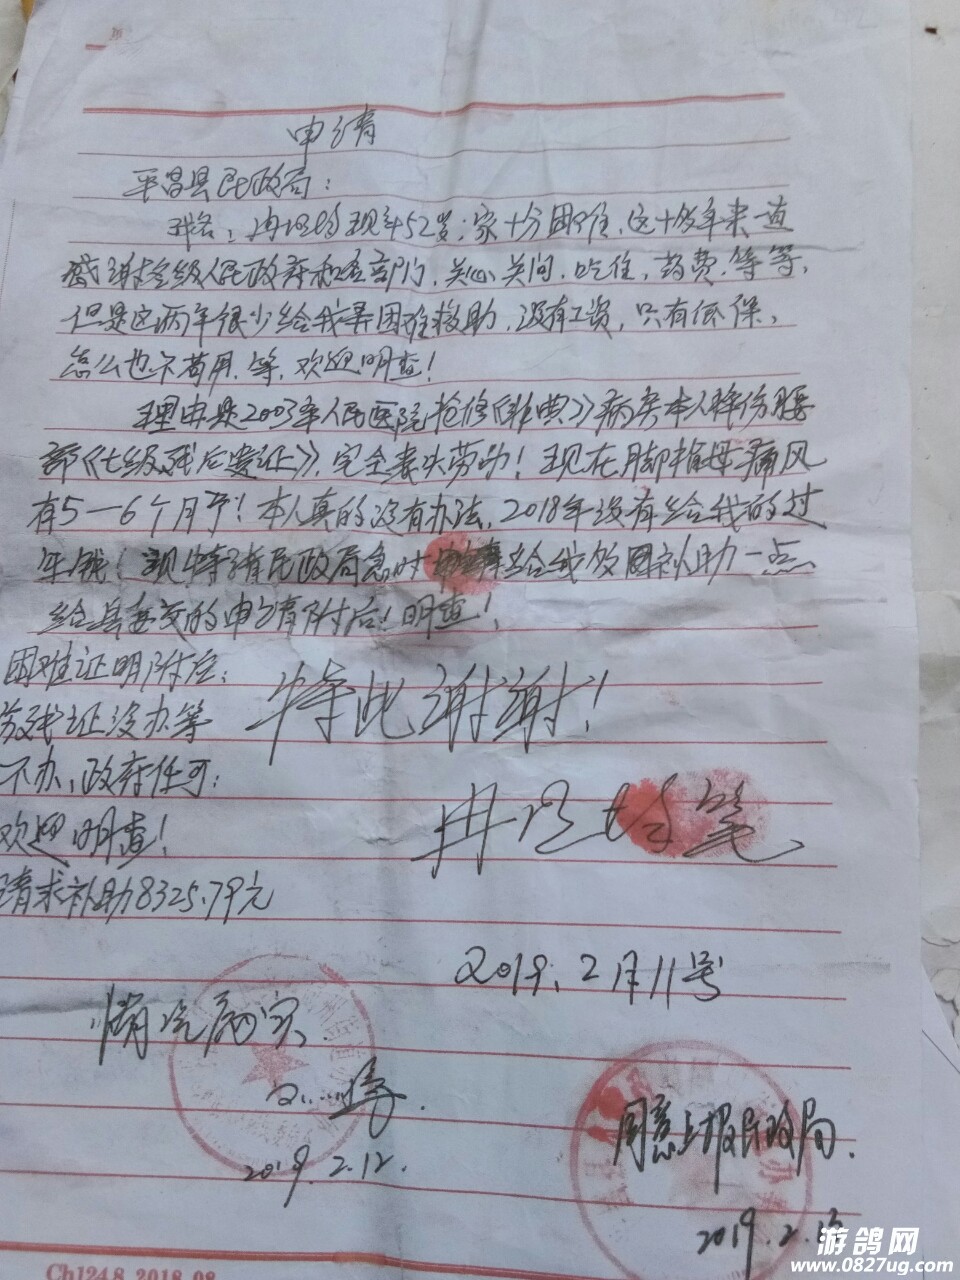 申请
平昌县民政局：
我名：冉 现年52岁，家十分困难，这十多年来一直
感谢各级人民政府和各部门，关心关问，吃住，药费，等等，
但是这两年很少给我弄困难救助，没有工资，只有低保，
怎么也不够用，等，欢迎明查！
理由是2003年人民医院抢修《非典》病房本人摔伤腰
部《七级残后遗证》，完全丧失劳动！现在脚拇母痛风
有5—6个月了！本人真的没有办法，2018年没有给我的过
年钱！现特请民政局急时 给我 困补助一点
给县委交的申请附后！明查！
困难证明附后：
残证没办等
不办，政府任可：
欢迎明查！
请求补助8325.79元
特此谢谢！
冉 笔
2019.2月11号
情况属实
2019.2.12.
同意上报民政局.
2019.2.
Ch124.8 2018.08
游鸽网
www.0827ug.com